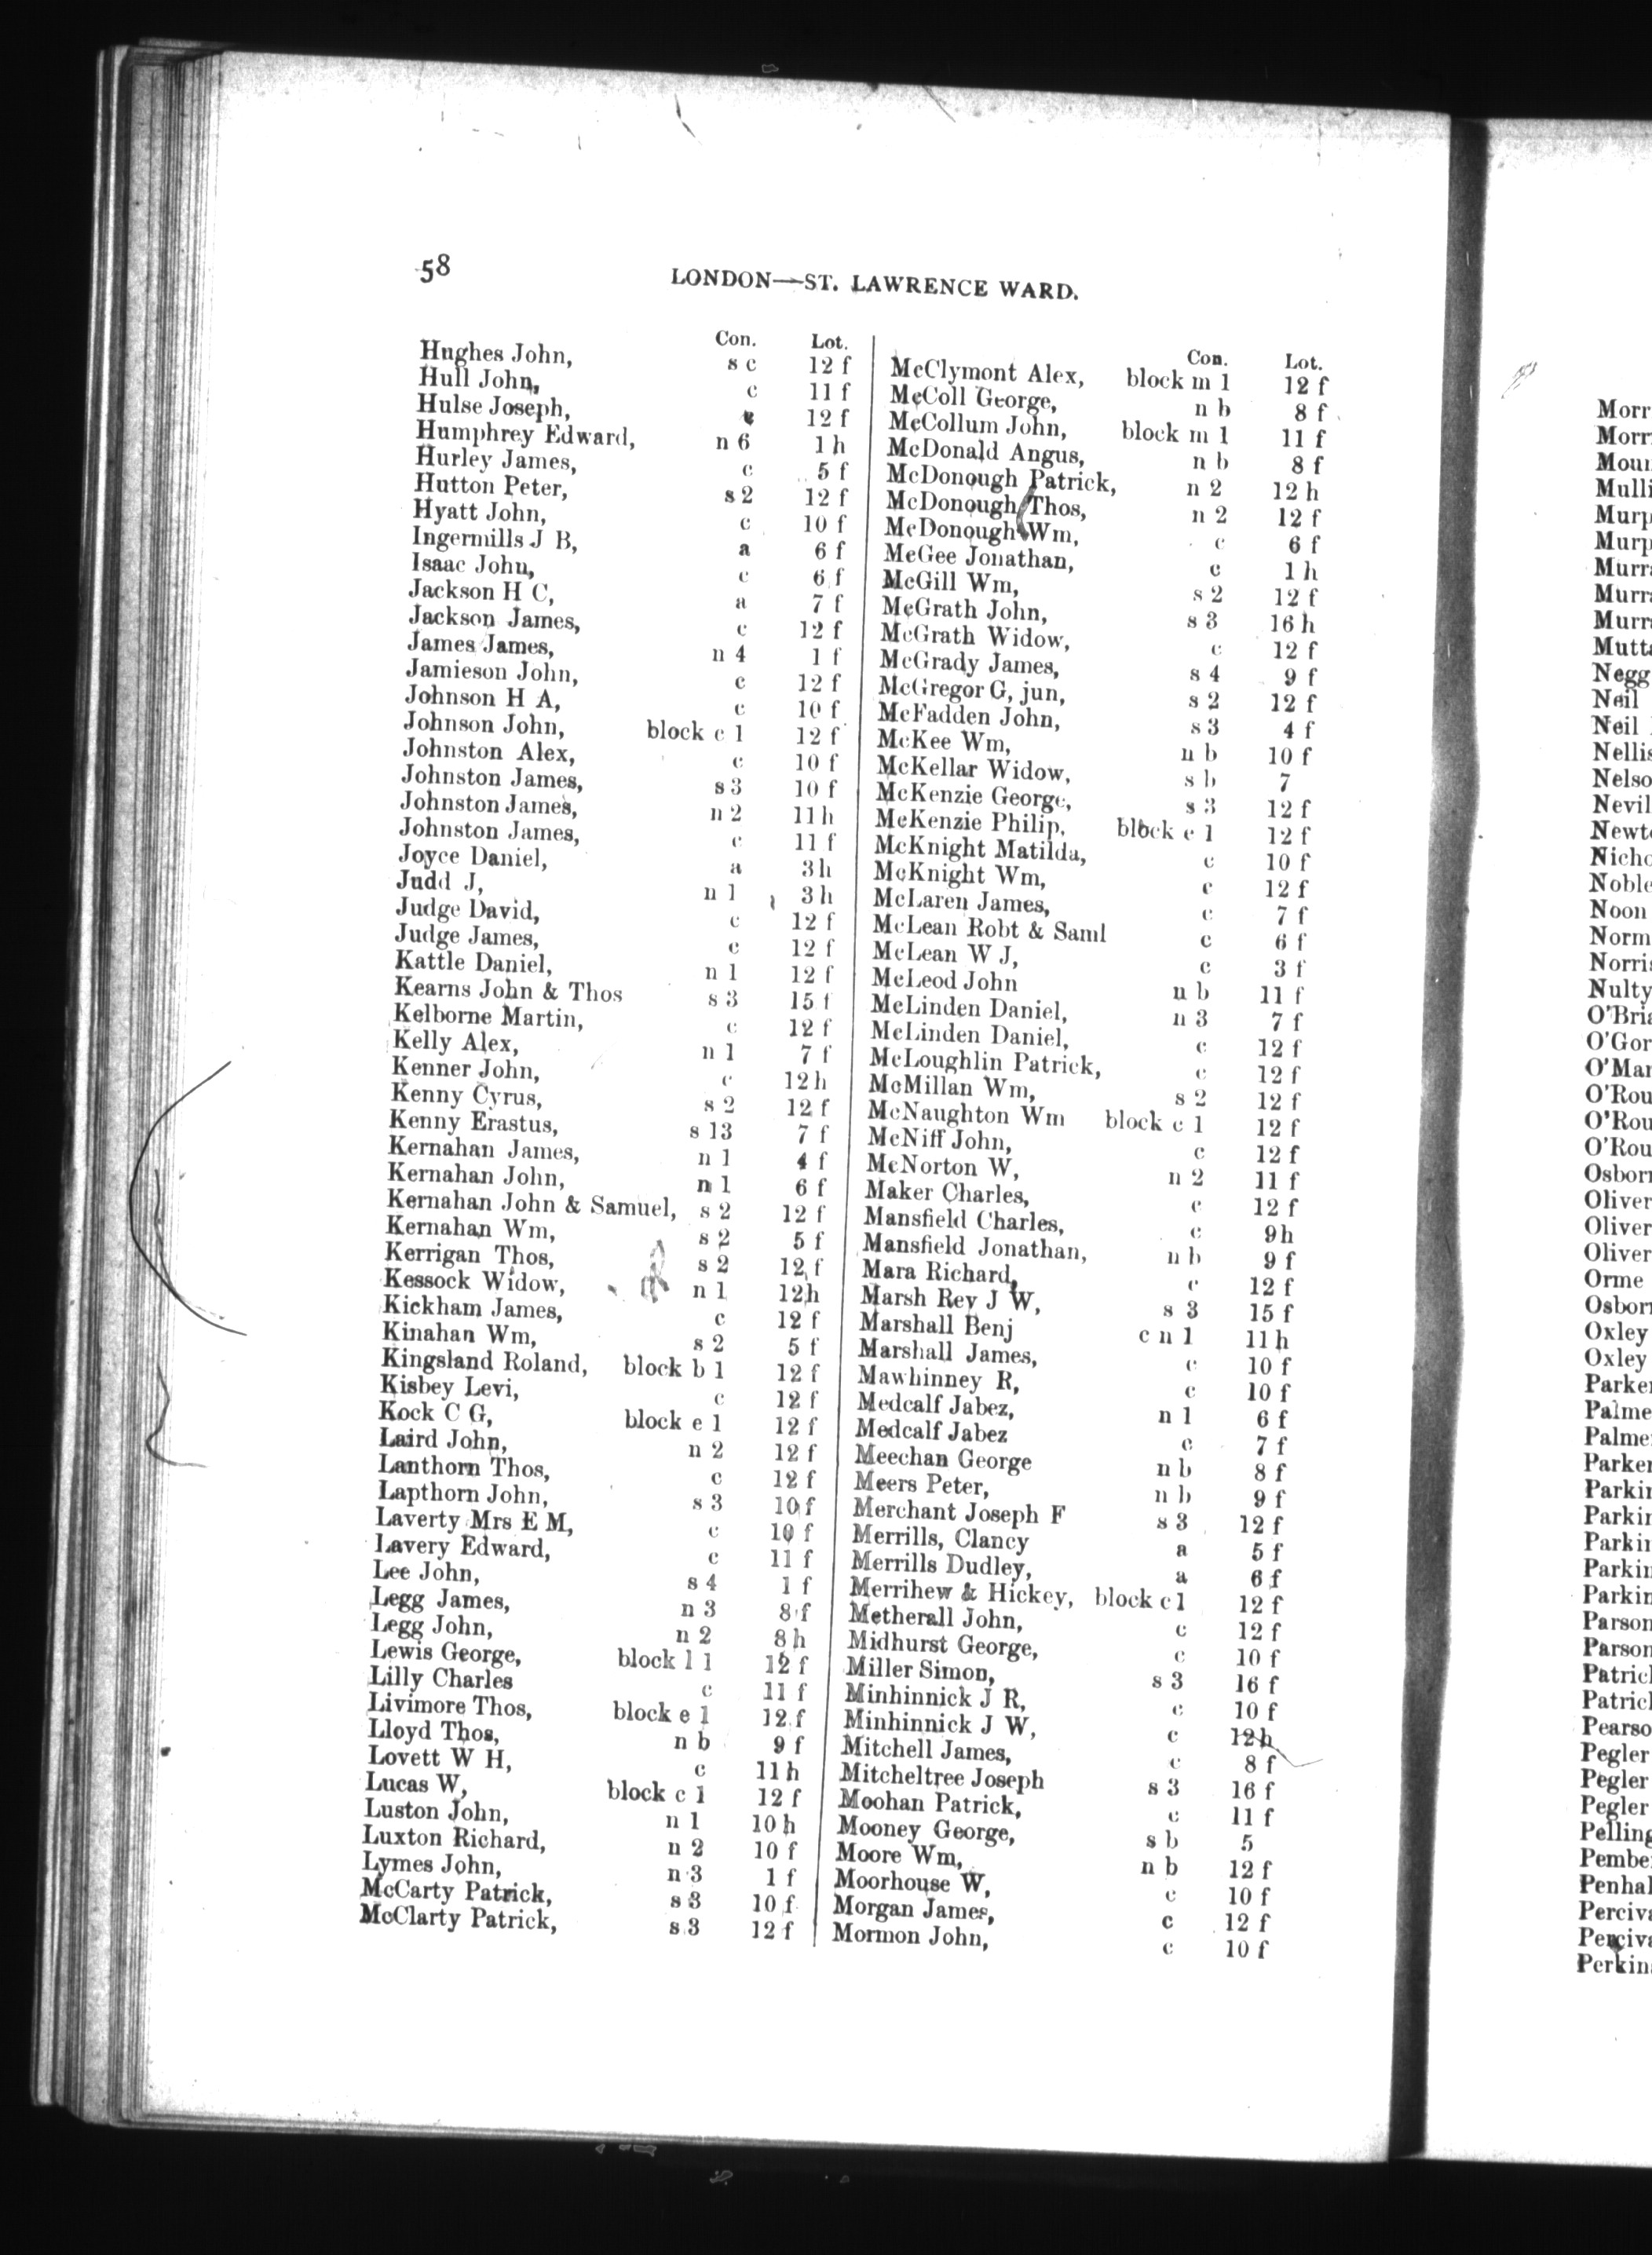 58
LONDON—ST. LAWRENCE WARD.
Con. Lot.
Hughes John, s c 12 f
Hull John, c 11 f
Hulse Joseph, 12 f
Humphrey Edward, n 6 1 h
Hurley James, c 5 f
Hutton Peter, s 2 12 f
Hyatt John, c 10 f
Ingermills J B, a 6 f
Isaac John, c 6 f
Jackson H C, a 7 f
Jackson James, c 12 f
James James, n 4 1 f
Jamieson John, c 12 f
Johnson H A, c 10 f
Johnson John, block c 1 12 f
Johnston Alex, c 10 f
Johnston James, s 3 10 f
Johnston James, n 2 11 h
Johnston James, c 11 f
Joyce Daniel, a 3 h
Judd J, n 1 3 h
Judge David, c 12 f
Judge James, c 12 f
Kattle Daniel, n 1 12 f
Kearns John & Thos s 3 15 f
Kelborne Martin, c 12 f
Kelly Alex, n 1 7 f
Kenner John, c 12 h
Kenny Cyrus, s 2 12 f
Kenny Erastus, s 13 7 f
Kernahan James, n 1 4 f
Kernahan John, n 1 6 f
Kernahan John & Samuel, s 2 12 f
Kernahan Wm, s 2 5 f
Kerrigan Thos, s 2 12 f
Kessock Widow, n 1 12h
Kickham James, c 12 f
Kinahan Wm, s 2 5 f
Kingsland Roland, block b 1 12 f
Kisbey Levi, c 12 f
Kock C G, block e 1 12 f
Laird John, n 2 12 f
Lanthorn Thos, c 12 f
Lapthorn John, s 3 10 f
Laverty Mrs E M, c 10 f
Lavery Edward, c 11 f
Lee John, s 4 1 f
Legg James, n 3 8 f
Legg John, n 2 8 h
Lewis George, block l 1 12 f
Lilly Charles c 11 f
Livimore Thos, block e 1 12 f
Lloyd Thos, n b 9 f
Lovett W H, c 11 h
Lucas W, block c 1 12 f
Luston John, n 1 10 h
Luxton Richard, n 2 10 f
Lymes John, n 3 1 f
McCarty Patrick, s 3 10 f
McClarty Patrick, s 3 12 f
Con. Lot.
McClymont Alex, block m 1 12 f
McColl George, n b 8 f
McCollum John, block m 1 11 f
McDonald Angus, n b 8 f
McDonough Patrick, n 2 12 h
McDonough Thos, n 2 12 f
McDonough Wm, c 6 f
McGee Jonathan, c 1 h
McGill Wm, s 2 12 f
McGrath John, s 3 16 h
McGrath Widow, c 12 f
McGrady James, s 4 9 f
McGregor G, jun, s 2 12 f
McFadden John, s 3 4 f
McKee Wm, n b 10 f
McKellar Widow, s b 7
McKenzie George, s 3 12 f
McKenzie Philip, block e 1 12 f
McKnight Matilda, c 10 f
McKnight Wm, c 12 f
McLaren James, c 7 f
McLean Robt & Saml c 6 f
McLean W J, c 3 f
McLeod John n b 11 f
McLinden Daniel, n 3 7 f
McLinden Daniel, c 12 f
McLoughlin Patrick, c 12 f
McMillan Wm, s 2 12 f
McNaughton Wm block c 1 12 f
McNiff John, c 12 f
McNorton W, n 2 11 f
Maker Charles, c 12 f
Mansfield Charles, c 9h
Mansfield Jonathan, n b 9 f
Mara Richard, c 12 f
Marsh Rev J W, s 3 15 f
Marshall Benj c n 1 11 h
Marshall James, c 10 f
Mawhinney R, c 10 f
Medcalf Jabez, n 1 6 f
Medcalf Jabez c 7 f
Meechan George n b 8 f
Meers Peter, n b 9 f
Merchant Joseph F s 3 12 f
Merrills, Clancy a 5 f
Merrills Dudley, a 6 f
Merrihew & Hickey, block c 1 12 f
Metherall John, c 12 f
Midhurst George, c 10 f
Miller Simon, s 3 16 f
Minhinnick J R, c 10 f
Minhinnick J W, c 12h
Mitchell James, c 8 f
Mitcheltree Joseph s 3 16 f
Moohan Patrick, c 11 f
Mooney George, s b 5
Moore Wm, n b 12 f
Moorhouse W, c 10 f
Morgan James, c 12 f
Mormon John, c 10 f
Morr
Morr
Mulli
Murp
Murp
Murr
Murr
Murr
Mutt
Negg
Neil
Neil
Nellis
Nelso
Nevil
Newt
Nicho
Noble
Noon
Norm
Norri
Nulty
O'Bri
O'Gor
O'Mar
O'Rou
O'Rou
O'Rou
Osborn
Oliver
Oliver
Oliver
Orme
Osborn
Oxley
Oxley
Parke
Palme
Palme
Parker
Parkin
Parkin
Parkin
Parkin
Parkin
Parson
Parson
Patric
Patric
Pearso
Pegler
Pegler
Pegler
Pelling
Pembe
Penhal
Perciv
Perciv
Perkin